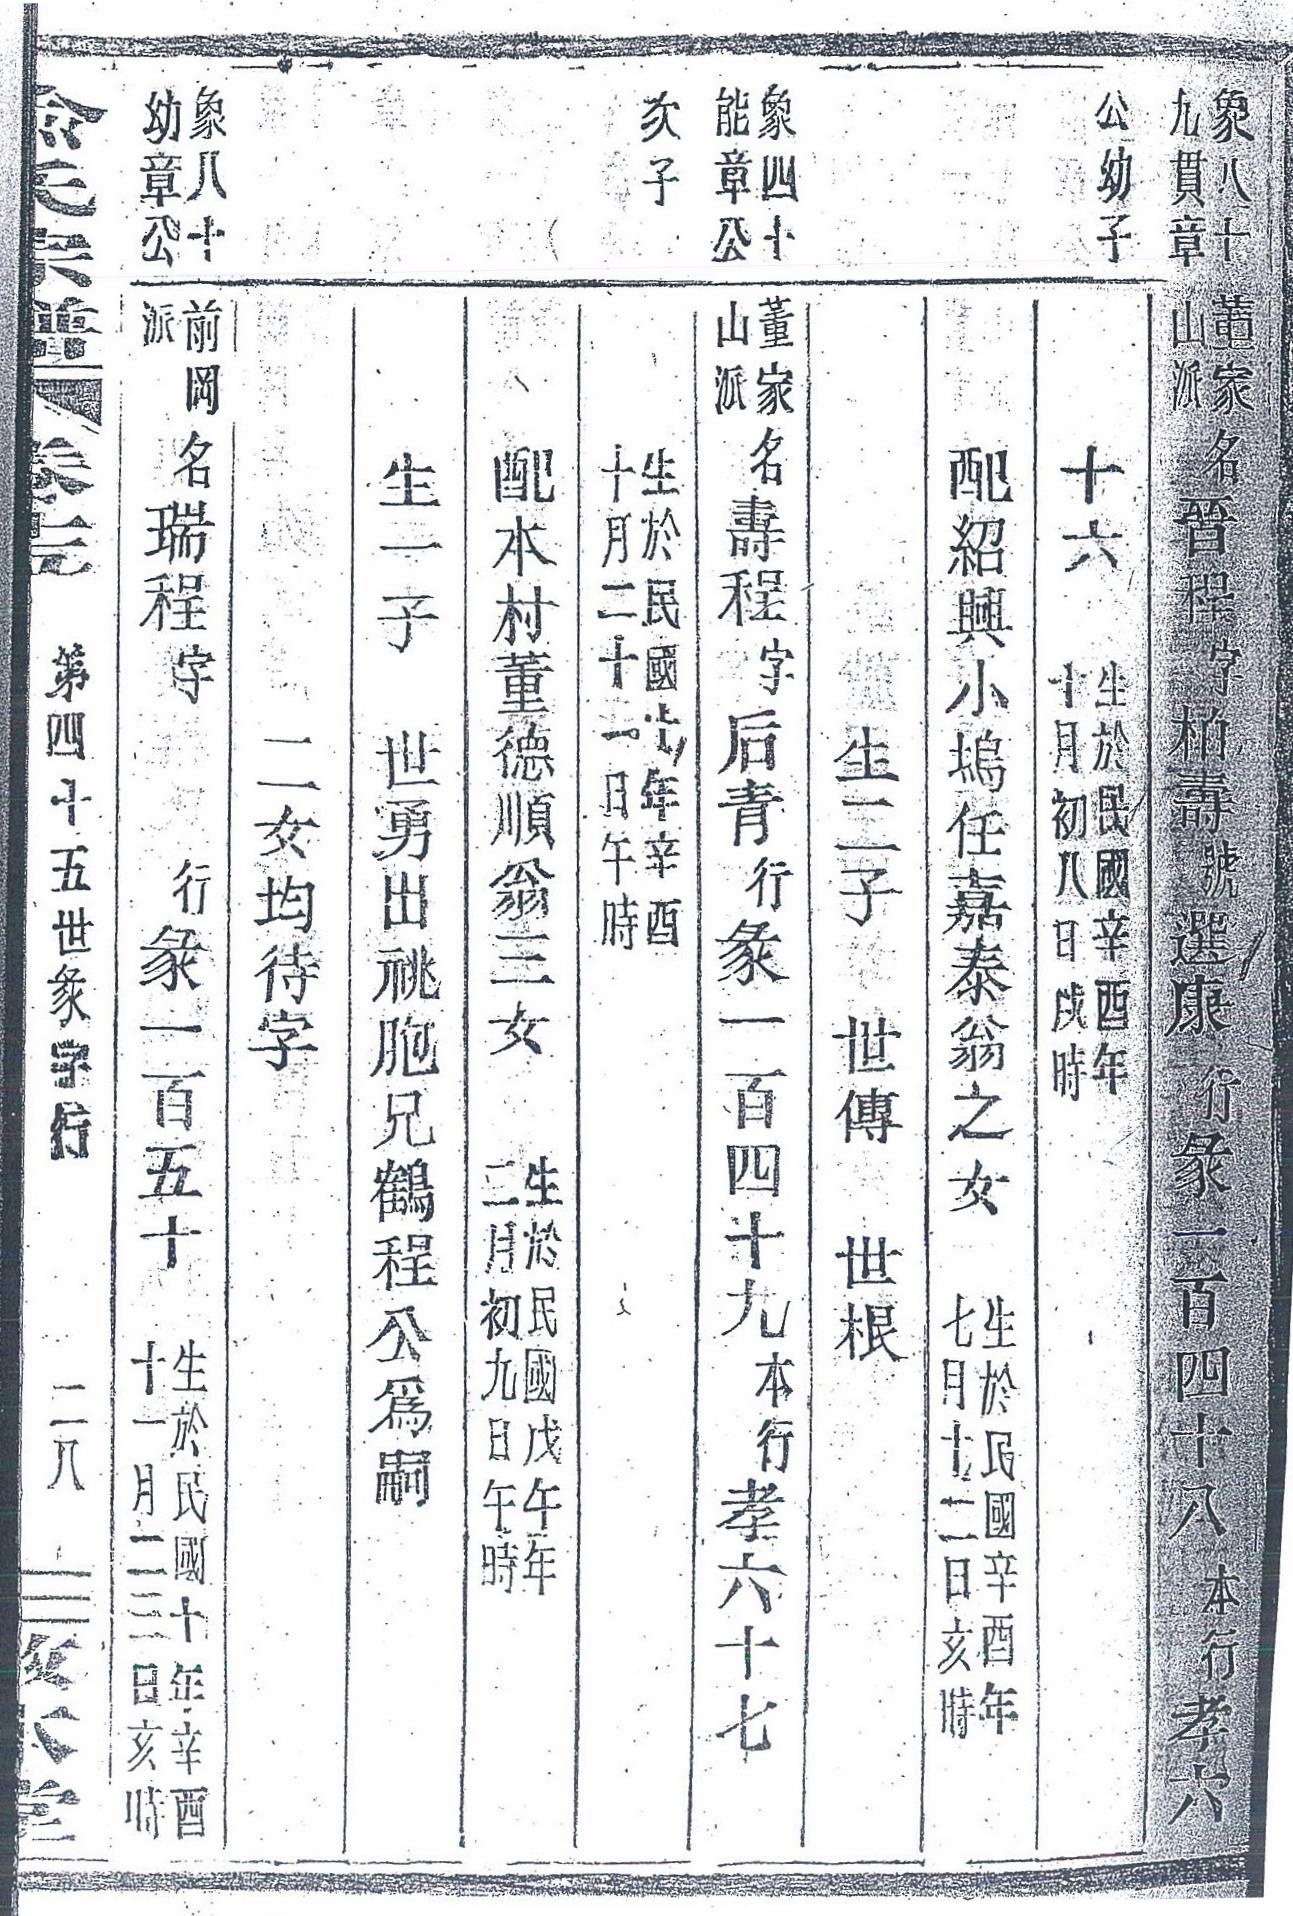 象八十
九貫章
董家
山派
名晉程字柏壽號選康行彖一百四十八本行孝六
公幼子
十六
生於民國辛酉年
十月初八日戌時
配紹興小塢任嘉泰翁之女
生於民國辛酉年
七月十二日亥時
生二子 世傳 世根
象四十
能章公
董家
山派
名壽程字后青行彖一百四十九本行孝六十七
次子
生於民國十年辛酉
十月二十一日午時
配本村董德順翁三女
生於民國戊午年
二月初九日午時
生一子 世勇出祧胞兄鶴程公爲嗣
二女均待字
象八十
幼章公
前岡
派
名瑞程字 行彖一百五十
生於民國十年辛酉
十一月二三日亥時
俞氏宗譜 卷 第四十五世彖字行 二八